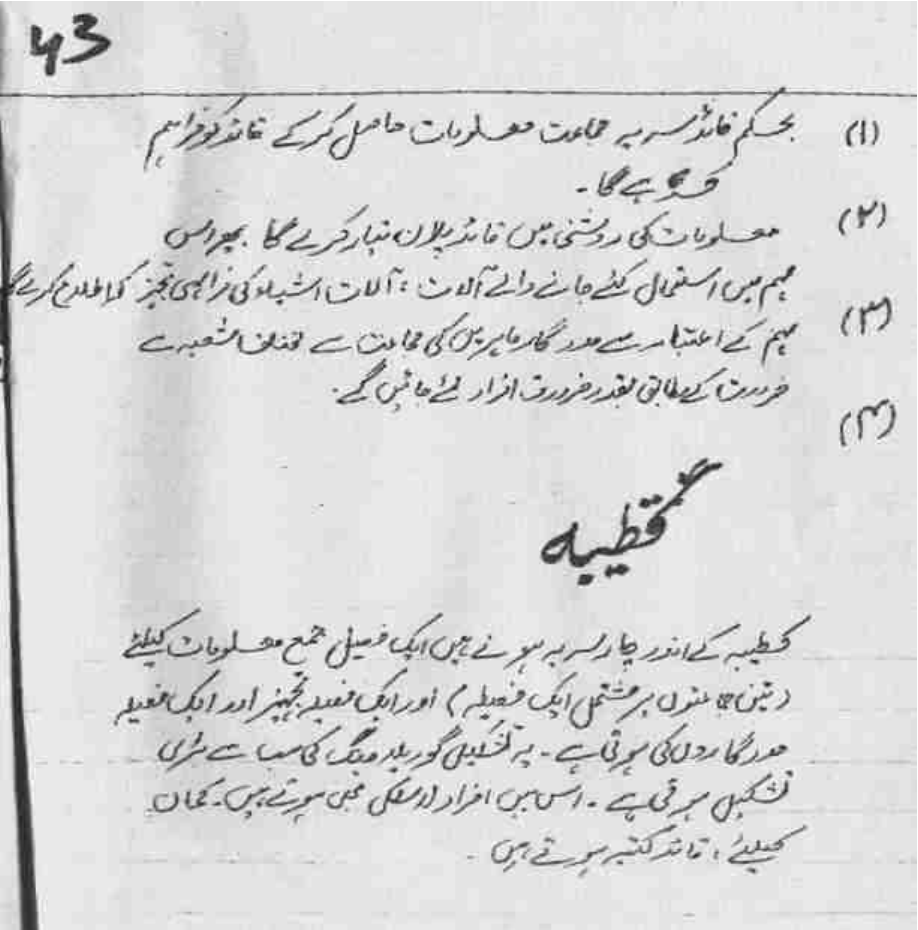 43
(۱) بحکم قائد سریہ جماعت معلومات حاصل کرکے قائد کو فراہم
ہے گا۔
(۲) معلومات کی روشنی میں قائد پلان تیار کرے گا پھر اس
مہم میں استعمال کئے جانے والے آلات، آلات اشیاء کی فراہمی تجہیز کو اطلاع کرے گا
(۳) مہم کے اعتبار سے مددگار ماہرین کی جماعت سے مختلف شعبہ سے
ضرورت کے مطابق بقدر ضرورت افراد لئے جائیں گے۔
(۴)
قطیبہ
کطیبہ کے اندر چار سریہ ہوتے ہیں ایک فصیل جمع معلومات کیلئے
(تین جماعتوں پر مشتمل ایک فصیلہ) اور ایک فصیلہ تجہیز اور ایک فصیلہ
مددگاروں کی ہوتی ہے۔ یہ تشکیل گوریلہ جنگ کی سب سے بڑی
تشکیل ہوتی ہے۔ اس میں افراد ہوتے ہیں۔ کمان
کیلئے، قائد کتیبہ ہوتے ہیں۔